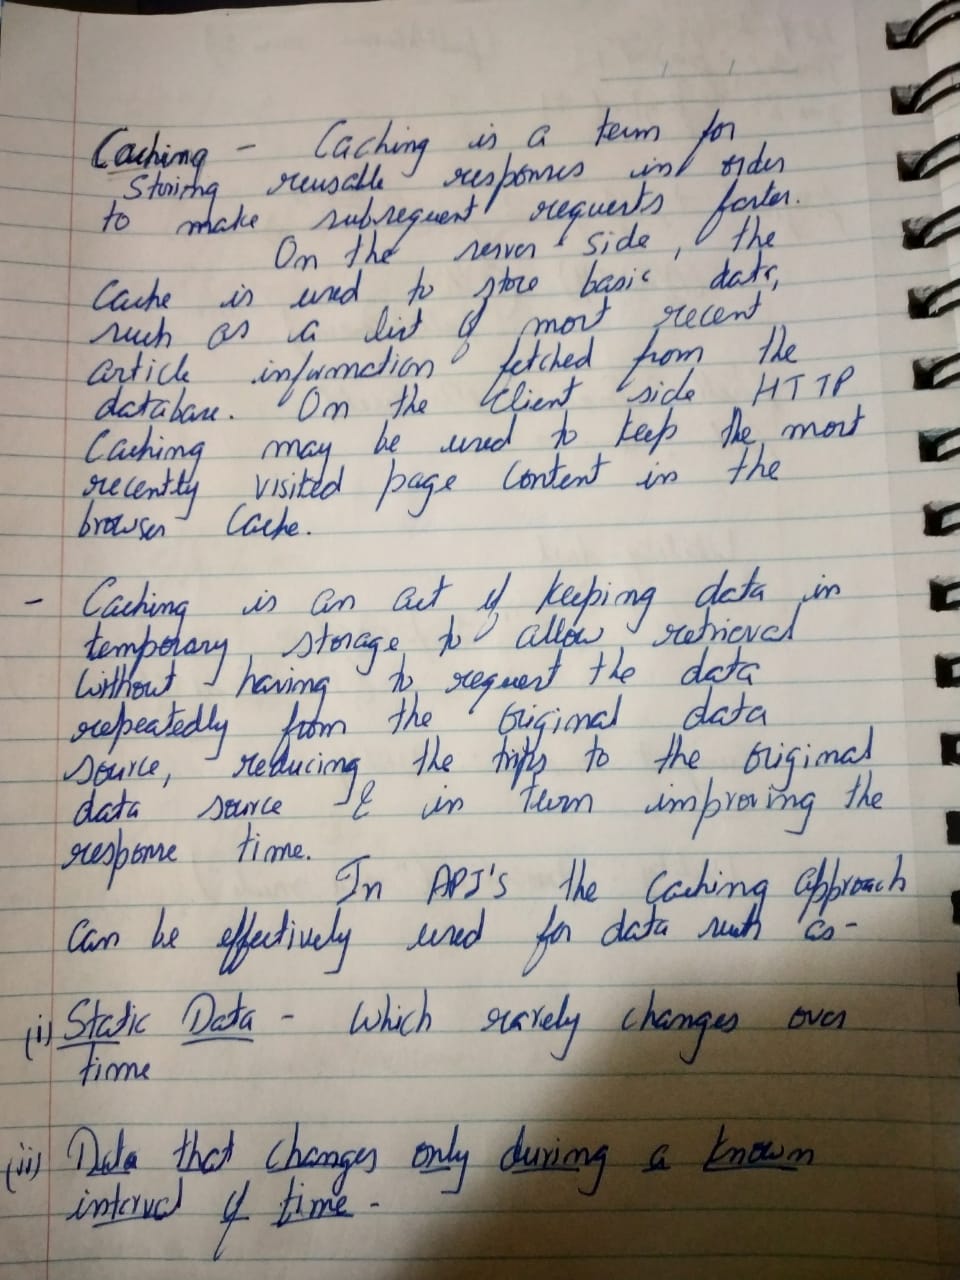 Caching - Caching is a term for
Storing reusable responses in order
to make subsequent requests faster.
On the server side, the
Cache is used to store basic data,
such as a list of most recent
article information fetched from the
database. On the Client side HTTP
Caching may be used to keep the most
recently visited page Content in the
browser Cache.
- Caching is an act of keeping data in
temporary storage to allow retrieval
without having to request the data
repeatedly from the original data
source, reducing the trips to the original
data source & in turn improving the
response time.
In API's the Caching approach
Can be effectively used for data such as -
(i) Static Data - Which rarely changes over
time
(ii) Data that changes only during a known
interval of time -